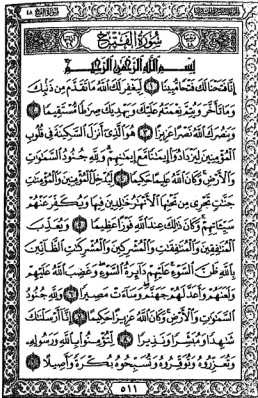 سورة الفتح
بسم الله الرحمن الرحيم
إنا فتحنا لك فتحا مبينا ١ ليغفر لك الله ما تقدم من ذنبك
وما تأخر ويتم نعمته عليك ويهديك صراطا مستقيما ٢
وينصرك الله نصرا عزيزا ٣ هو الذي أنزل السكينة في قلوب
المؤمنين ليزدادوا إيمانا مع إيمانهم ولله جنود السماوات
والأرض وكان الله عليما حكيما ٤ ليدخل المؤمنين والمؤمنات
جنات تجري من تحتها الأنهار خالدين فيها ويكفر عنهم
سيئاتهم وكان ذلك عند الله فوزا عظيما ٥ ويعذب
المنافقين والمنافقات والمشركين والمشركات الظانين
بالله ظن السوء عليهم دائرة السوء وغضب الله عليهم
ولعنهم وأعد لهم جهنم وساءت مصيرا ٦ ولله جنود
السماوات والأرض وكان الله عزيزا حكيما ٧ إنا أرسلناك
شاهدا ومبشرا ونذيرا ٨ لتؤمنوا بالله ورسوله
وتعزروه وتوقروه وتسبحوه بكرة وأصيلا ٩
٥١١